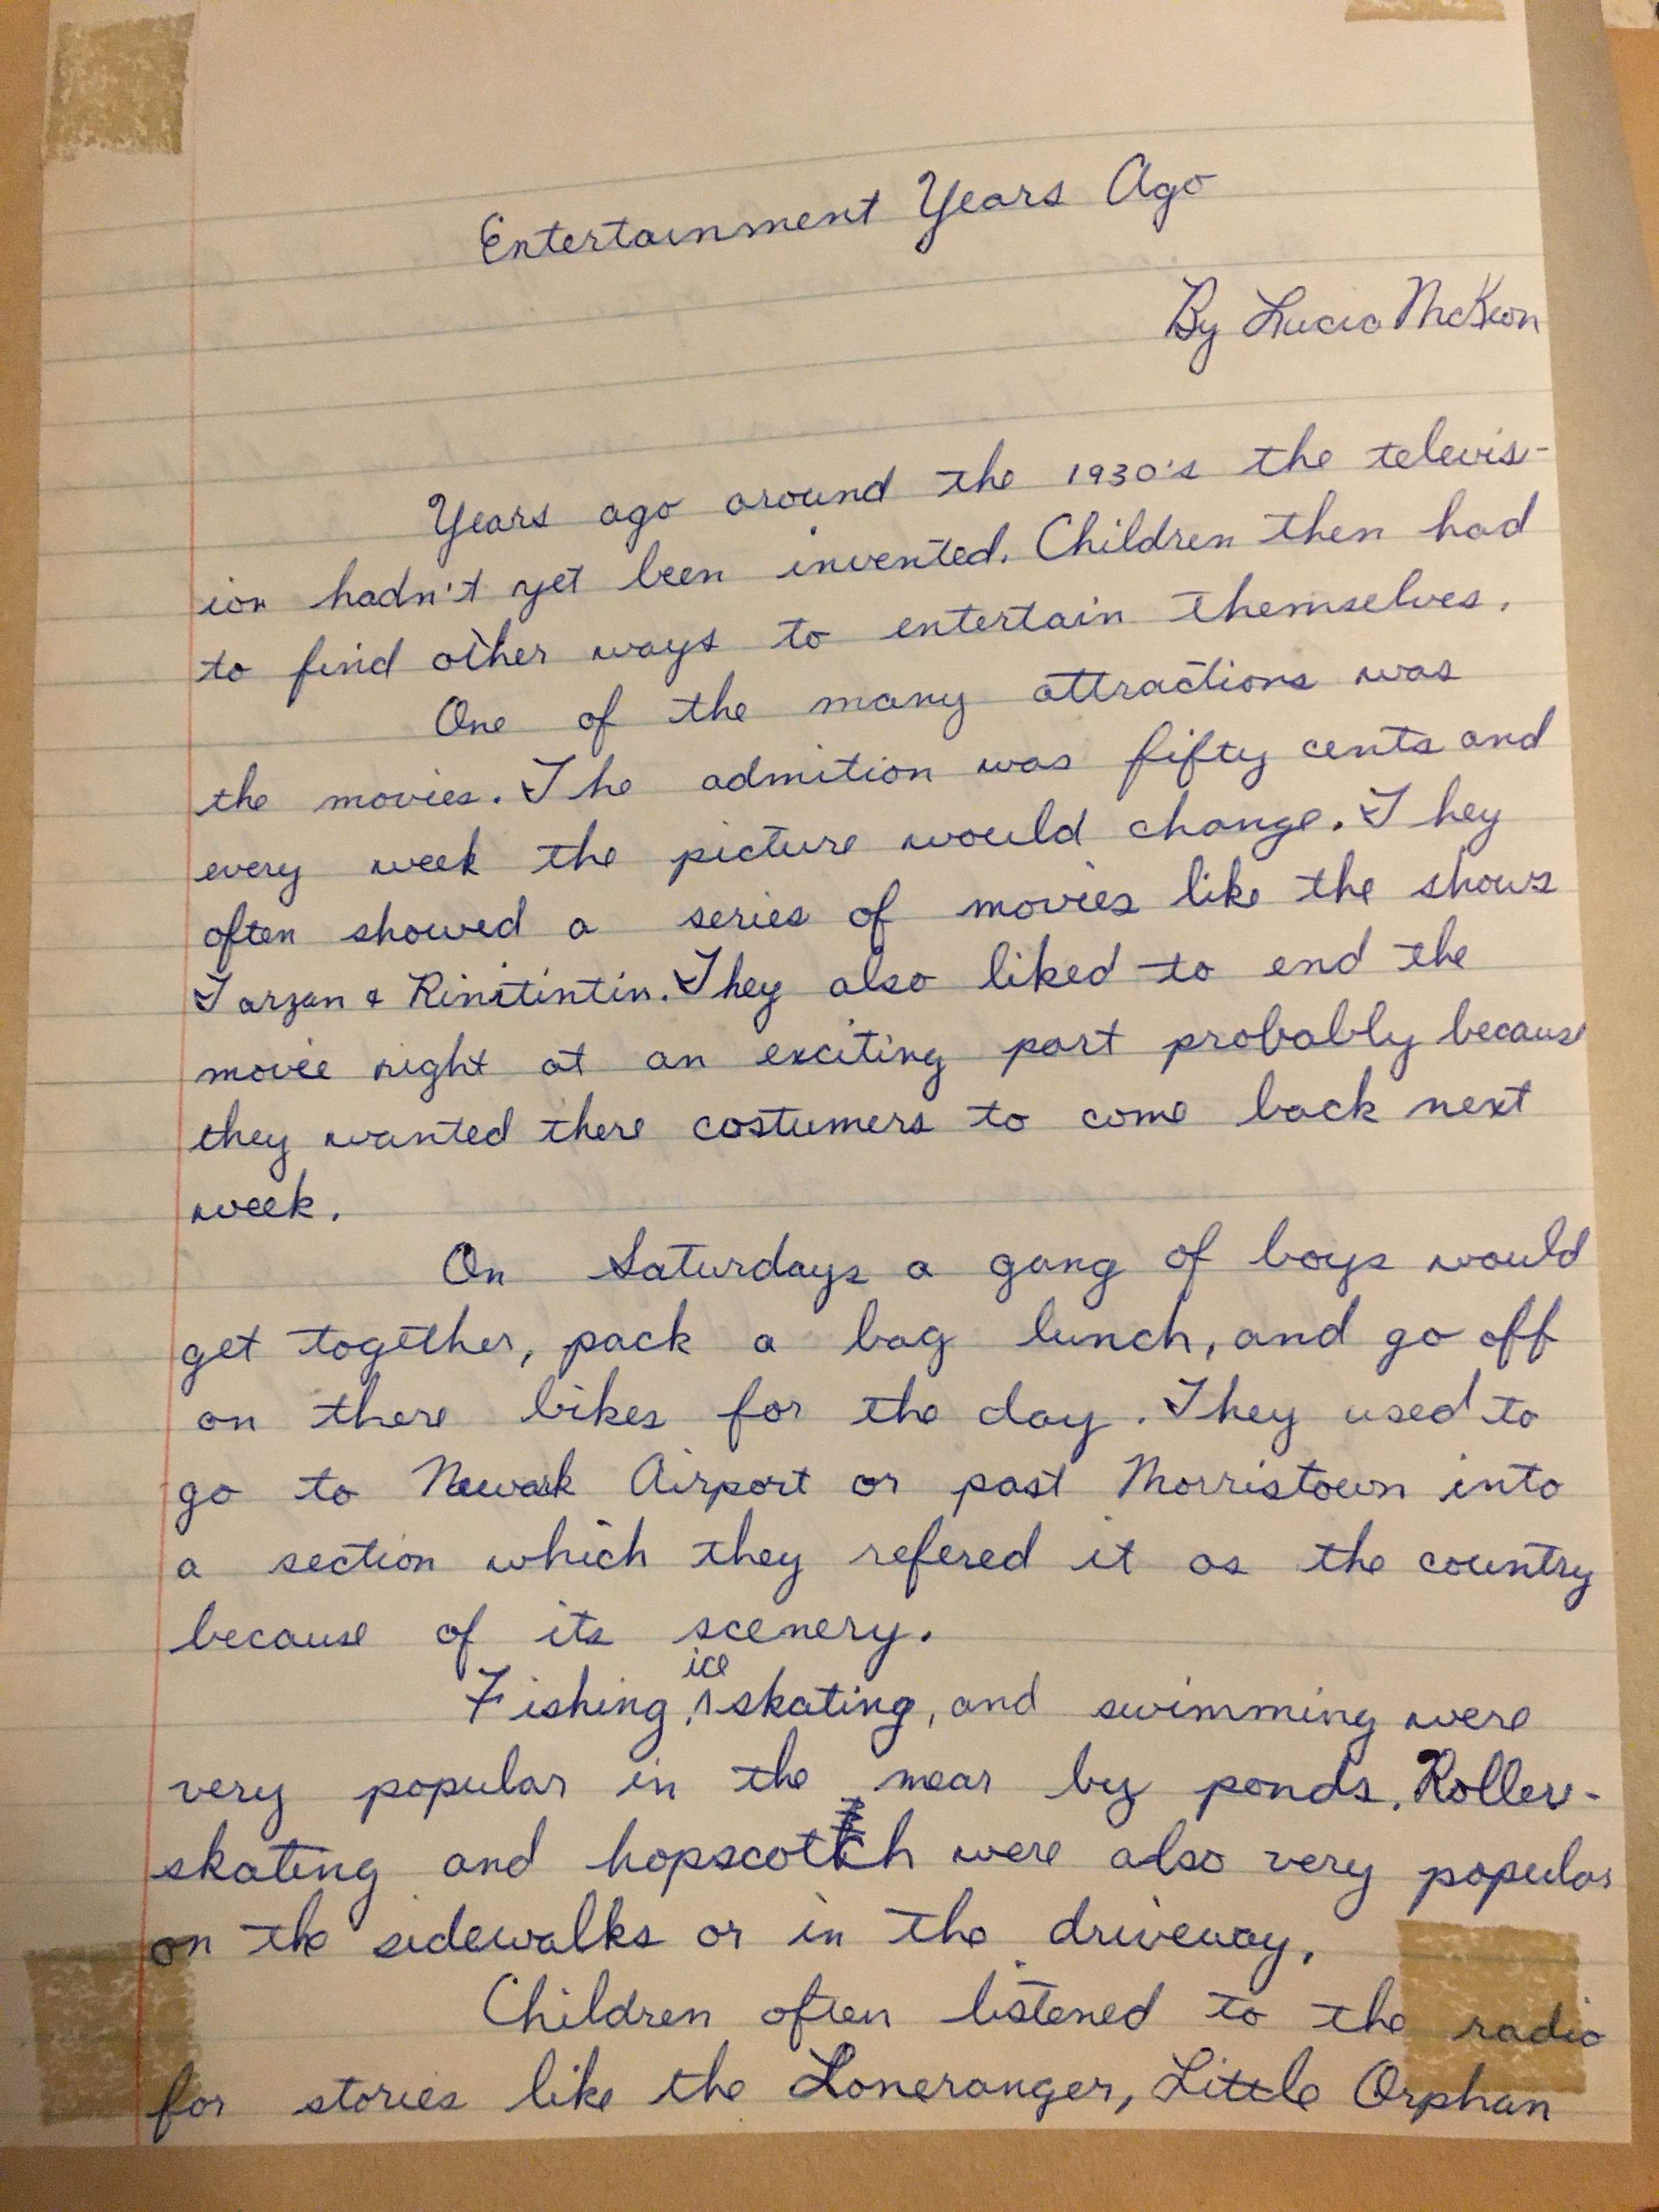 Entertainment Years Ago
By Lucia McKeon
Years ago around the 1930's the televis-
ion hadn't yet been invented. Children then had
to find other ways to entertain themselves.
One of the many attractions was
the movies. The admition was fifty cents and
every week the picture would change. They
often showed a series of movies like the shows
Tarzan & Rintintin. They also liked to end the
movie right at an exciting part probably because
they wanted there costumers to come back next
week.
On Saturdays a gang of boys would
get together, pack a bag lunch, and go off
on there bikes for the day. They used to
go to Newark Airport or past Morristown into
a section which they refered it as the country
because of its scenery.
Fishing, ice skating, and swimming were
very popular in the near by ponds. Roller-
skating and hopscotch were also very popular
on the sidewalks or in the driveway.
Children often listened to the radio
for stories like the Loneranger, Little Orphan